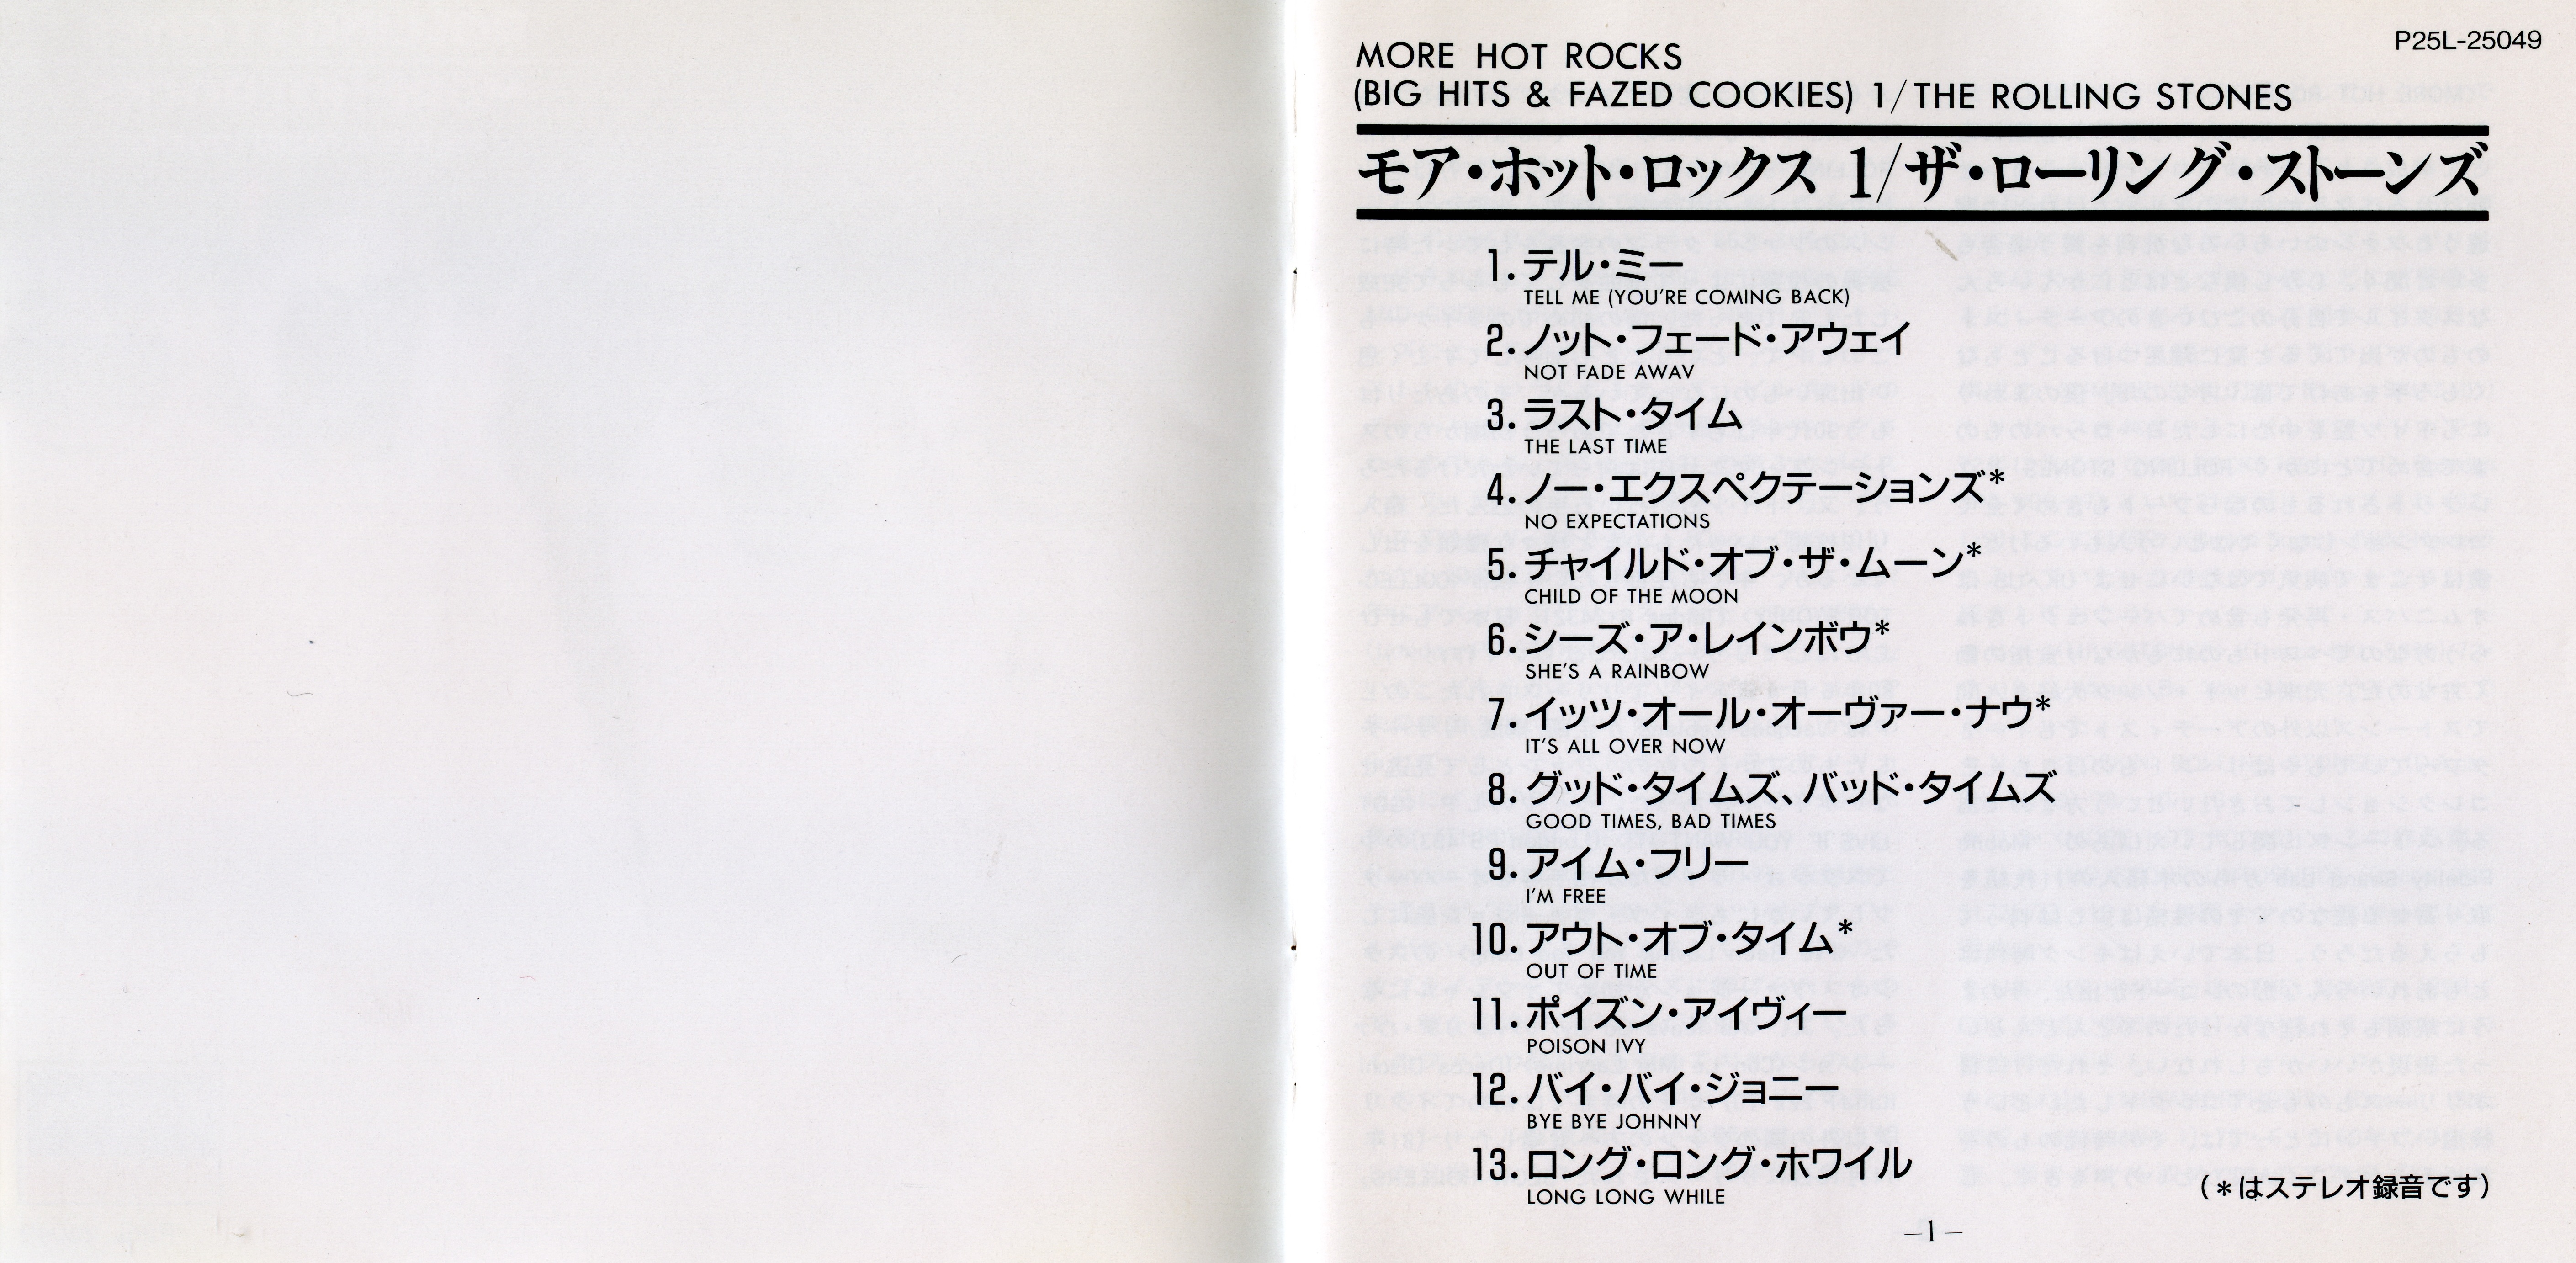 P25L-25049
MORE HOT ROCKS
(BIG HITS & FAZED COOKIES) 1/THE ROLLING STONES
モア・ホット・ロックス 1/ザ・ローリング・ストーンズ
1. テル・ミー
TELL ME (YOU'RE COMING BACK)
2. ノット・フェード・アウェイ
NOT FADE AWAV
3. ラスト・タイム
THE LAST TIME
4. ノー・エクスペクテーションズ*
NO EXPECTATIONS
5. チャイルド・オブ・ザ・ムーン*
CHILD OF THE MOON
6. シーズ・ア・レインボウ*
SHE'S A RAINBOW
7. イッツ・オール・オーヴァー・ナウ*
IT'S ALL OVER NOW
8. グッド・タイムズ、バッド・タイムズ
GOOD TIMES, BAD TIMES
9. アイム・フリー
I'M FREE
10. アウト・オブ・タイム*
OUT OF TIME
11. ポイズン・アイヴィー
POISON IVY
12. バイ・バイ・ジョニー
BYE BYE JOHNNY
13. ロング・ロング・ホワイル
LONG LONG WHILE
(*はステレオ録音です)
—1—